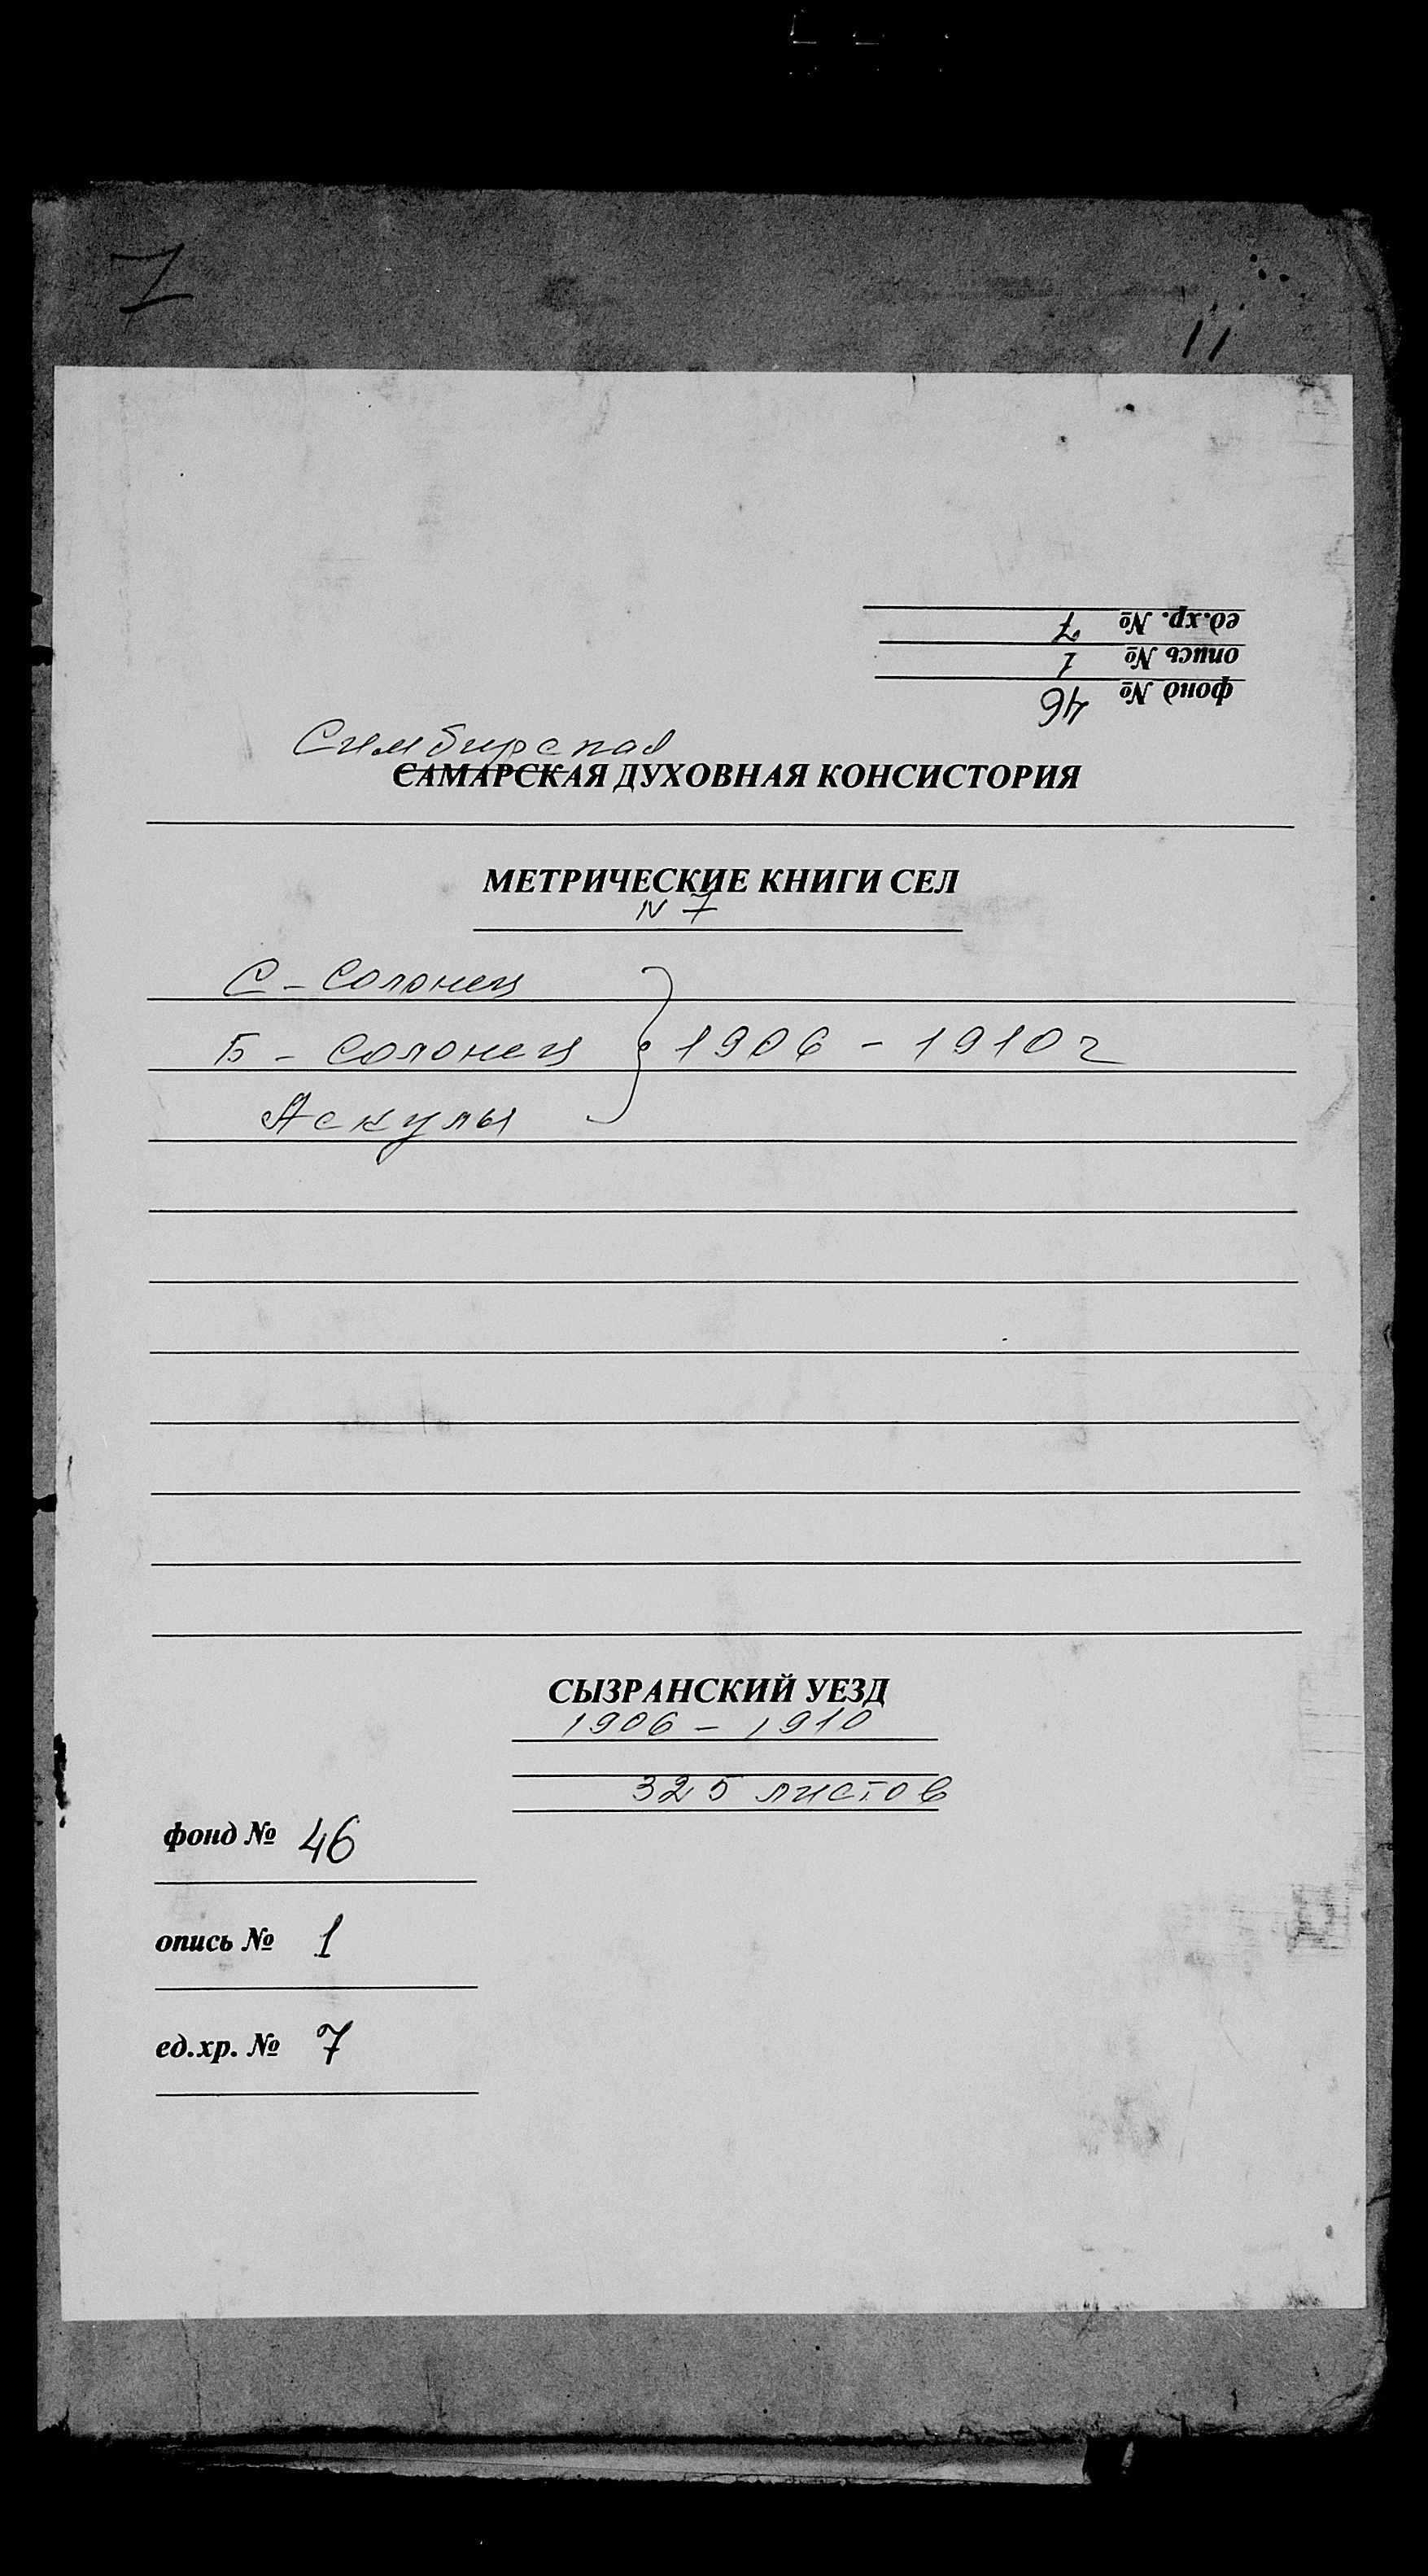 7
11
ед.хр. № 7
опись № 1
фонд № 46
Симбирская
САМАРСКАЯ ДУХОВНАЯ КОНСИСТОРИЯ
МЕТРИЧЕСКИЕ КНИГИ СЕЛ
N 7
С - Солонец
Б - Солонец } 1906 - 1910 г
Аскулы
СЫЗРАНСКИЙ УЕЗД
1906 - 1910
325 листов
фонд № 46
опись № 1
ед.хр. № 7